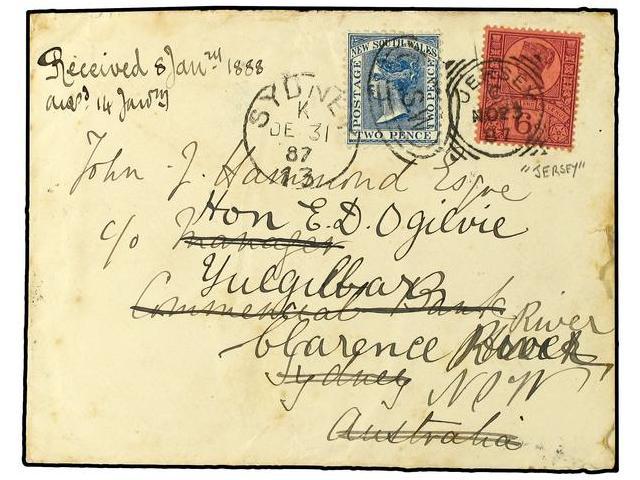 Received 8 Janry 1888
ansd 14 Janry
NEW SOUTH WALES
POSTAGE
TWO PENCE
TWO PENCE
SYDNEY
K
DE 31
87
13
JERSEY
NO 23
87
6
"JERSEY"
John J. Hammond Esqre
Hon E. D. Ogilvie
c/o Manager
Yulgilbar
Commercial Bank
River
Clarence River
Sydney
NSW
Australia